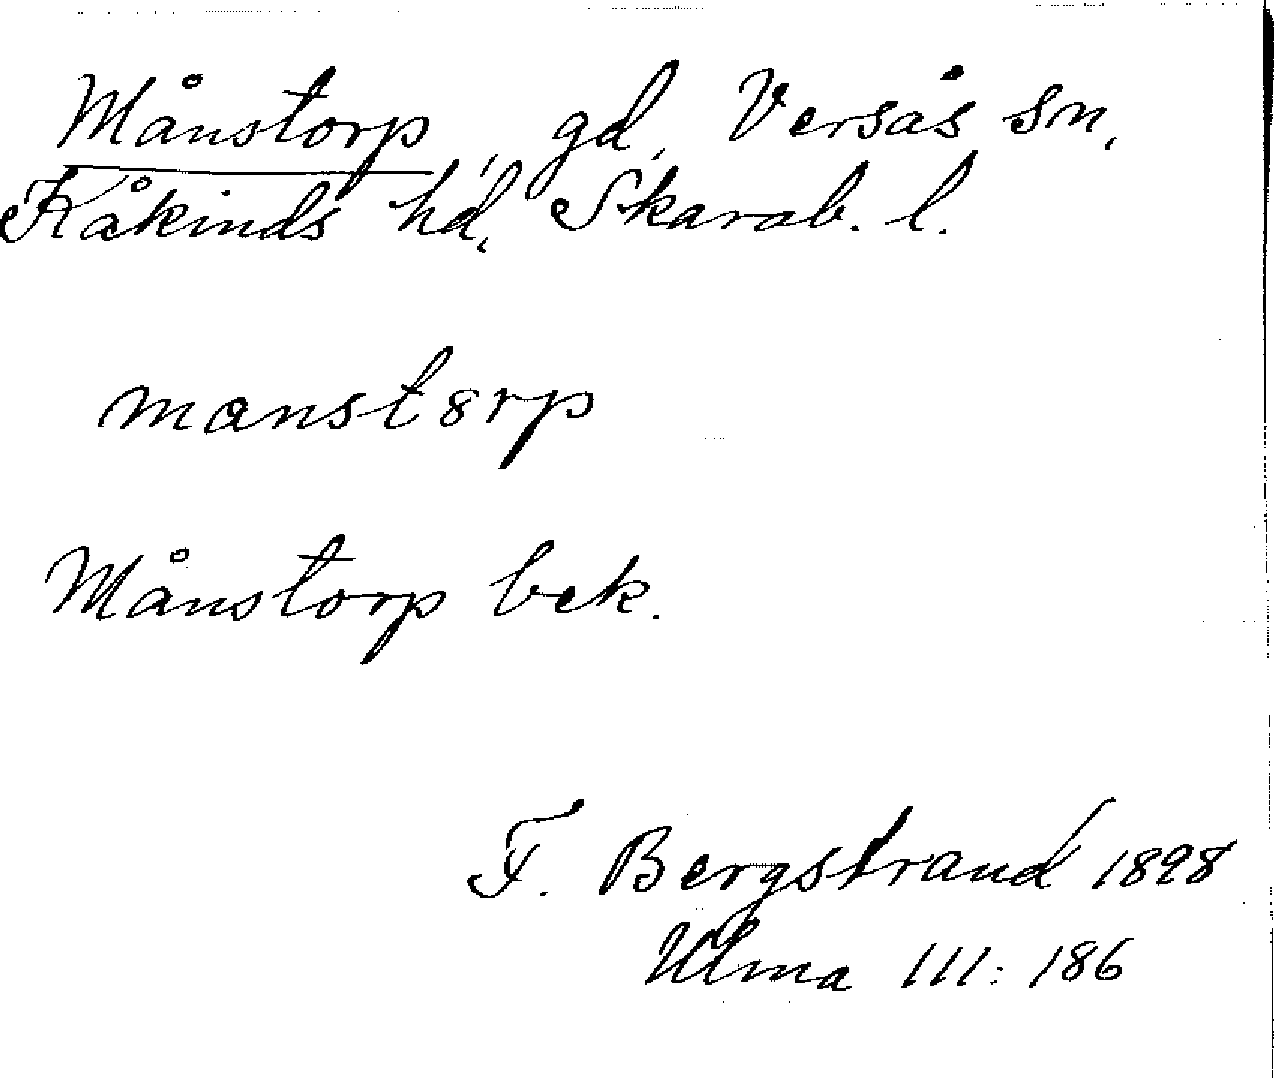 Månstorp, gd, Versås sn,
Kåkinds hd, Skarab. l.
manst8rp
Månstorp bek.
F. Bergstrand 1898
Ulma 111: 186